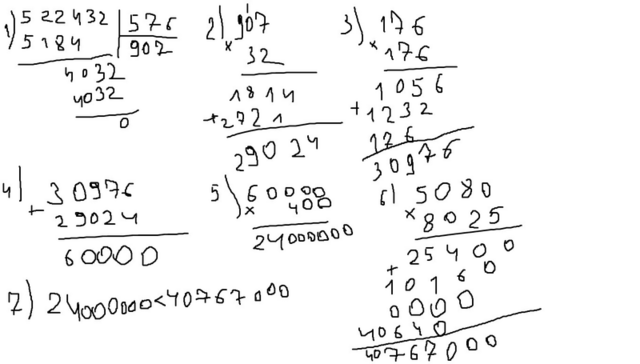 1) 522432 | 576
5184 | 907
4032
4032
0
2) 907
× 32
1814
+ 2721
29024
3) 176
× 176
1056
+ 1232
176
30976
4) 30976
+ 29024
60000
5) 60000
× 400
24000000
6) 5080
× 8025
25400
+ 10160
0000
40640
40767000
7) 24000000<40767000